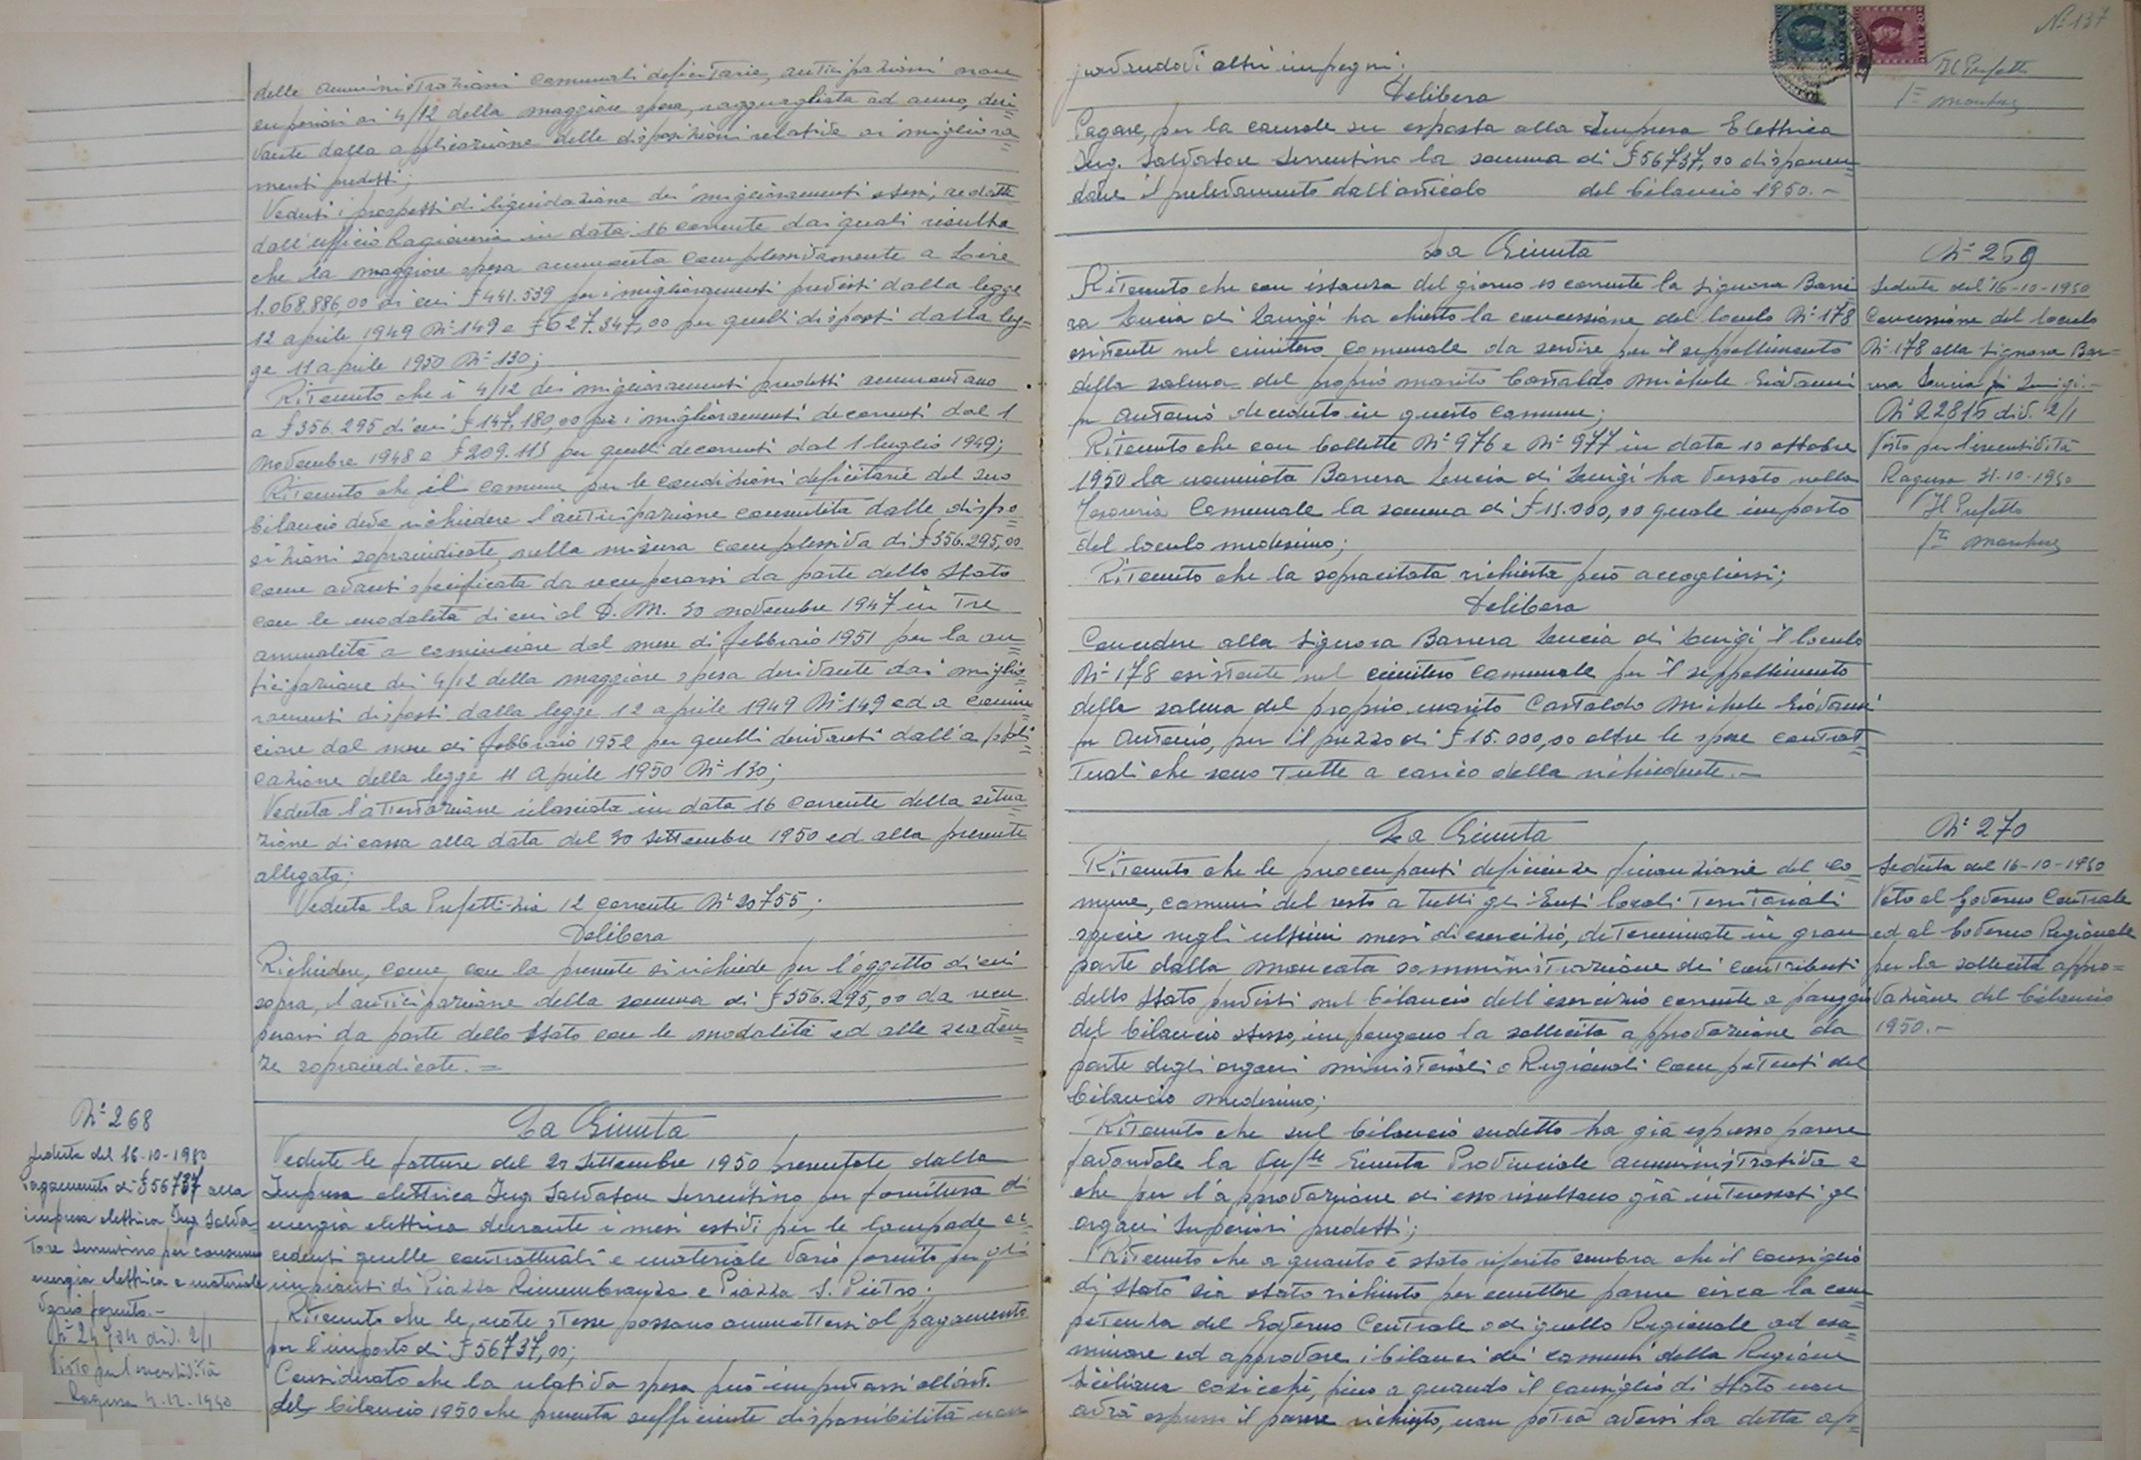 delle amministrazioni comunali deficitarie, anticipazioni non
superiori ai 4/12 della maggiore spesa, ragguagliata ad anno, deri=
vante dalla applicazione delle disposizioni relative ai migliora=
menti predetti;
Veduti i prospetti di liquidazione dei miglioramenti stessi, redatti
dall'ufficio Ragioneria in data 16 corrente dai quali risulta
che la maggiore spesa ammonta complessivamente a Lire
1.068.886,00 di cui £ 441.539 per i miglioramenti previsti dalla legge
12 aprile 1949 N° 149 e £ 627.347,00 per quelli disposti dalla leg=
ge 11 aprile 1950 N° 130;
Ritenuto che i 4/12 dei miglioramenti predetti ammontano
a £ 356.295 di cui £ 147.180,00 per i miglioramenti decorrenti dal 1
novembre 1948 e £ 209.115 per quelli decorrenti dal 1 luglio 1949;
Ritenuto che il comune per le condizioni deficitarie del suo
bilancio deve richiedere l'anticipazione consentita dalle dispo=
sizioni sopraindicate, nella misura complessiva di £ 356.295,00
come avanti specificata da recuperarsi da parte dello Stato
con le modalità di cui al D. M. 30 novembre 1947 in tre
annualità a cominciare dal mese di febbraio 1951 per la an=
ticipazione dei 4/12 della maggiore spesa derivante dai miglio=
ramenti disposti dalla legge 12 aprile 1949 N° 149 ed a comin=
ciare dal mese di febbraio 1952 per quelli derivanti dall'appli=
cazione della legge 11 Aprile 1950 N° 130;
Veduta l'attestazione rilasciata in data 16 corrente della situa=
zione di cassa alla data del 30 Settembre 1950 ed alla presente
allegata;
Veduta la Prefettizia 12 corrente N° 20755;
Delibera
Richiedere, come con la presente si richiede per l'oggetto di cui
sopra, l'anticipazione della somma di £ 356.295,00 da recu=
perarsi da parte dello Stato con le modalità ed alle scaden=
ze sopraindicate.=
N° 268
Seduta del 16-10-1950
Pagamento di £ 56737 alla
impresa elettrica Ing. Salva=
tore Serrentino per consumo
energia elettrica e materiale
vario fornito.-
N° div. 2/1
Visto per l'esecutività
Ragusa 4.12.1950
La Giunta
Vedute le fatture del 20 Settembre 1950 presentate dalla
Impresa elettrica Ing. Salvatore Serrentino per fornitura di
energia elettrica durante i mesi estivi per le lampade ec=
cedenti quelle contrattuali e materiale vario fornito per gli
impianti di Piazza Rimembranza e Piazza S. Pietro;
Ritenuto che le note stesse possano ammettersi al pagamento
per l'importo di £ 56737,00;
Considerato che la relativa spesa può imputarsi all'art.
del bilancio 1950 che presenta sufficiente disponibilità non
N° 137
gravandovi altri impegni;
Delibera
Pagare, per la causale su esposta alla Impresa Elettrica
Ing. Salvatore Serrentino la somma di £ 56737,00 disponen=
done il prelevamento dall'articolo del bilancio 1950.-
Il Prefetto
La Giunta
Ritenuto che con istanza del giorno 10 corrente la Signora Barre=
ra Lucia di Luigi ha chiesto la concessione del loculo N° 178
esistente nel cimitero comunale da servire per il seppellimento
della salma del proprio marito Castaldo Michele Giovanni
fu Antonio deceduto in questo comune;
Ritenuto che con bollette N° 976 e N° 977 in data 10 ottobre
1950 la nominata Barrera Lucia di Luigi ha versato nella
Tesoreria Comunale la somma di £ 15.000,00 quale importo
del loculo medesimo;
Ritenuto che la sopracitata richiesta può accogliersi;
Delibera
Concedere alla Signora Barrera Lucia di Luigi il loculo
N° 178 esistente nel cimitero Comunale per il seppellimento
della salma del proprio marito Castaldo Michele Giovanni
fu Antonio, per il prezzo di £ 15.000,00 oltre le spese contrat=
tuali che sono tutte a carico della richiedente.-
N° 269
Seduta del 16-10-1950
Concessione del loculo
N° 178 alla Signora Bar=
rera Lucia di Luigi.-
N° 22815 div. 2/1
Visto per l'esecutività
Ragusa 31-10-1950
Il Prefetto
La Giunta
Ritenuto che le preoccupanti deficienze finanziarie del co=
mune, comuni del resto a tutti gli Enti locali Territoriali
specie negli ultimi mesi di esercizio, determinate in gran
parte dalla mancata somministrazione dei contributi
dello Stato previsti nel bilancio dell'esercizio corrente a pareggio
del bilancio stesso, impongono la sollecita approvazione da
parte degli organi ministeriali o Regionali competenti del
bilancio medesimo;
Ritenuto che sul bilancio sudetto ha già espresso parere
favorevole la On/le Giunta Provinciale amministrativa e
che per l'approvazione di esso risultano già interessati gli
organi Superiori predetti;
Ritenuto che a quanto è stato riferito sembra che il consiglio
di Stato sia stato richiesto per emettere parere circa la com=
petenza del Governo Centrale o di quello Regionale ad esa=
minare ed approvare i bilanci dei comuni della Regione
Siciliana cosicchè, fino a quando il consiglio di Stato non
avrà espresso il parere richiesto, non potrà aversi la detta ap=
N° 270
Seduta del 16-10-1950
Voto al Governo Centrale
ed al Governo Regionale
per la sollecita appro=
vazione del bilancio
1950.-